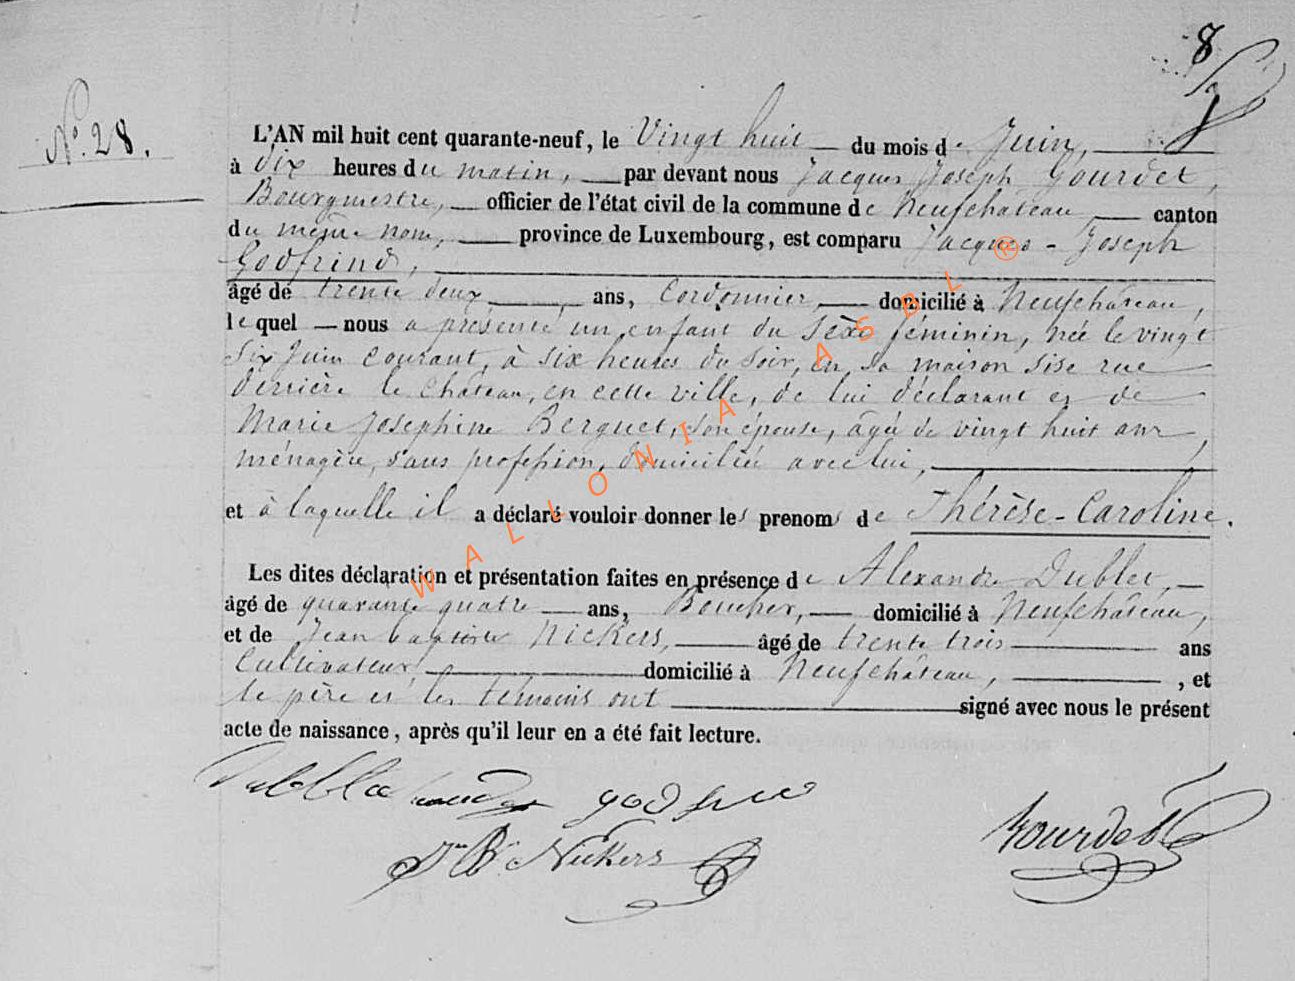 8
N.° 28.
L'AN mil huit cent quarante-neuf, le Vingt huit du mois de Juin,
à dix heures du matin, par devant nous Jacques Joseph Gourdet,
Bourgmestre, officier de l'état civil de la commune de Neufchâteau, canton
du même nom, province de Luxembourg, est comparu Jacques-Joseph
Godfrind,
âgé de trente deux ans, Cordonnier, domicilié à Neufchâteau,
lequel nous a présenté un enfant du Sexe féminin, née le vingt
six Juin courant, à six heures du soir, en sa maison sise rue
derrière le Château, en cette ville, de lui déclarant et de
Marie Josephine Berguet, son épouse, âgée de vingt huit ans,
ménagère, sans profession, domiciliée avec lui,
et à laquelle il a déclaré vouloir donner les prenoms de Thérèse-Caroline.
Les dites déclaration et présentation faites en présence de Alexandre Dublet,
âgé de quarante quatre ans, Boucher, domicilié à Neufchâteau,
et de Jean baptiste Nickers, âgé de trente trois ans
Cultivateur, domicilié à Neufchâteau, , et
le père et les témoins ont signé avec nous le présent
acte de naissance, après qu'il leur en a été fait lecture.
Gourdet
J.n B. Nickers
WALLONIA ASBL ®